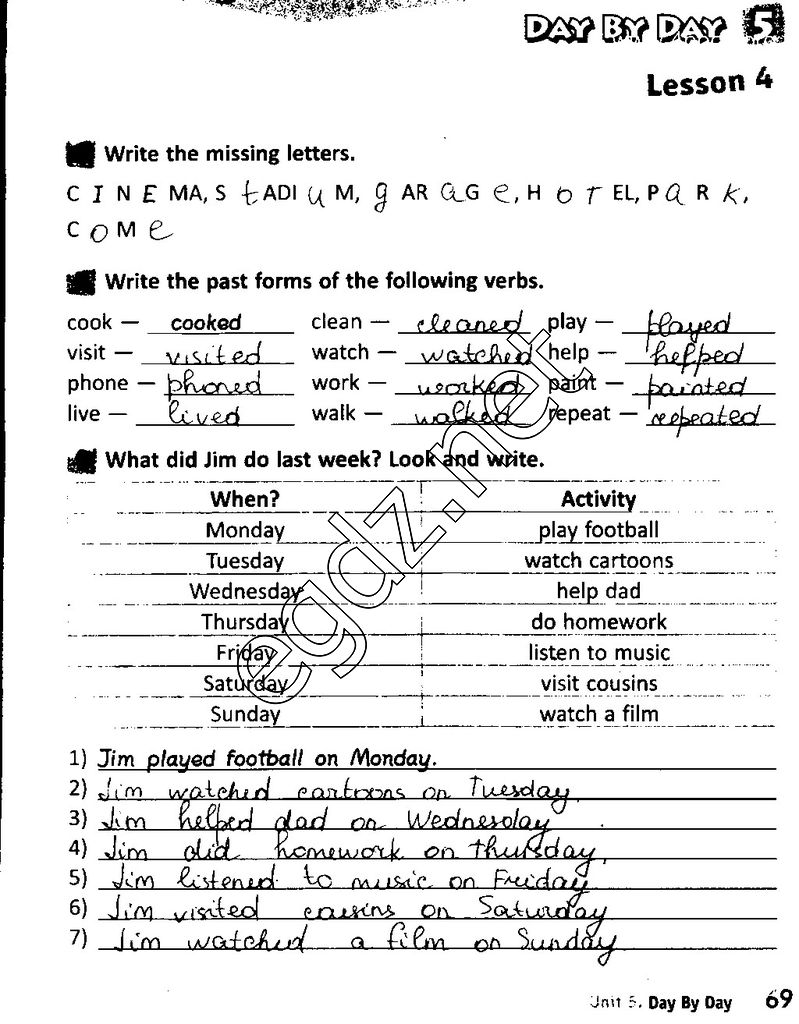 DAY BY DAY 5
Lesson 4
Write the missing letters.
C I N E MA, S t ADI u M, g AR a G e, H o T EL, P a R k,
C o M e
Write the past forms of the following verbs.
cook — cooked clean — cleaned play — played
visit — visited watch — watched help — helped
phone — phoned work — worked paint — painted
live — lived walk — walked repeat — repeated
What did Jim do last week? Look and write.
When? Activity
Monday play football
Tuesday watch cartoons
Wednesday help dad
Thursday do homework
Friday listen to music
Saturday visit cousins
Sunday watch a film
egdz.net
1) Jim played football on Monday.
2) Jim watched cartoons on Tuesday.
3) Jim helped dad on Wednesday.
4) Jim did homework on thursday.
5) Jim listened to music on Friday
6) Jim visited cousins on Saturday
7) Jim watched a film on Sunday
Unit 5. Day By Day 69